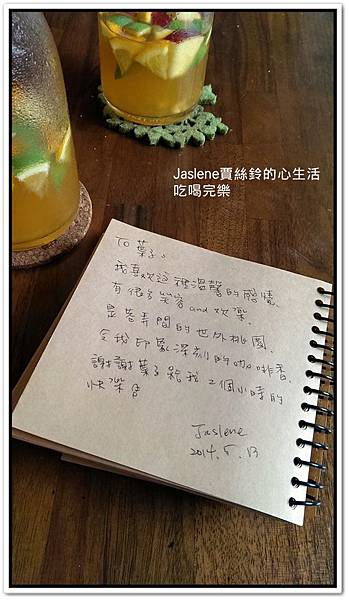 Jaslene賈絲鈴的心生活
吃喝完樂
To 葉子:
我喜歡這裡溫馨的感情、
有很多笑容and歡樂、
是巷弄間的世外桃園、
令我印象深刻的咖啡香、
謝謝葉子給我2個小時的
快樂
Jaslene
2014.5.13